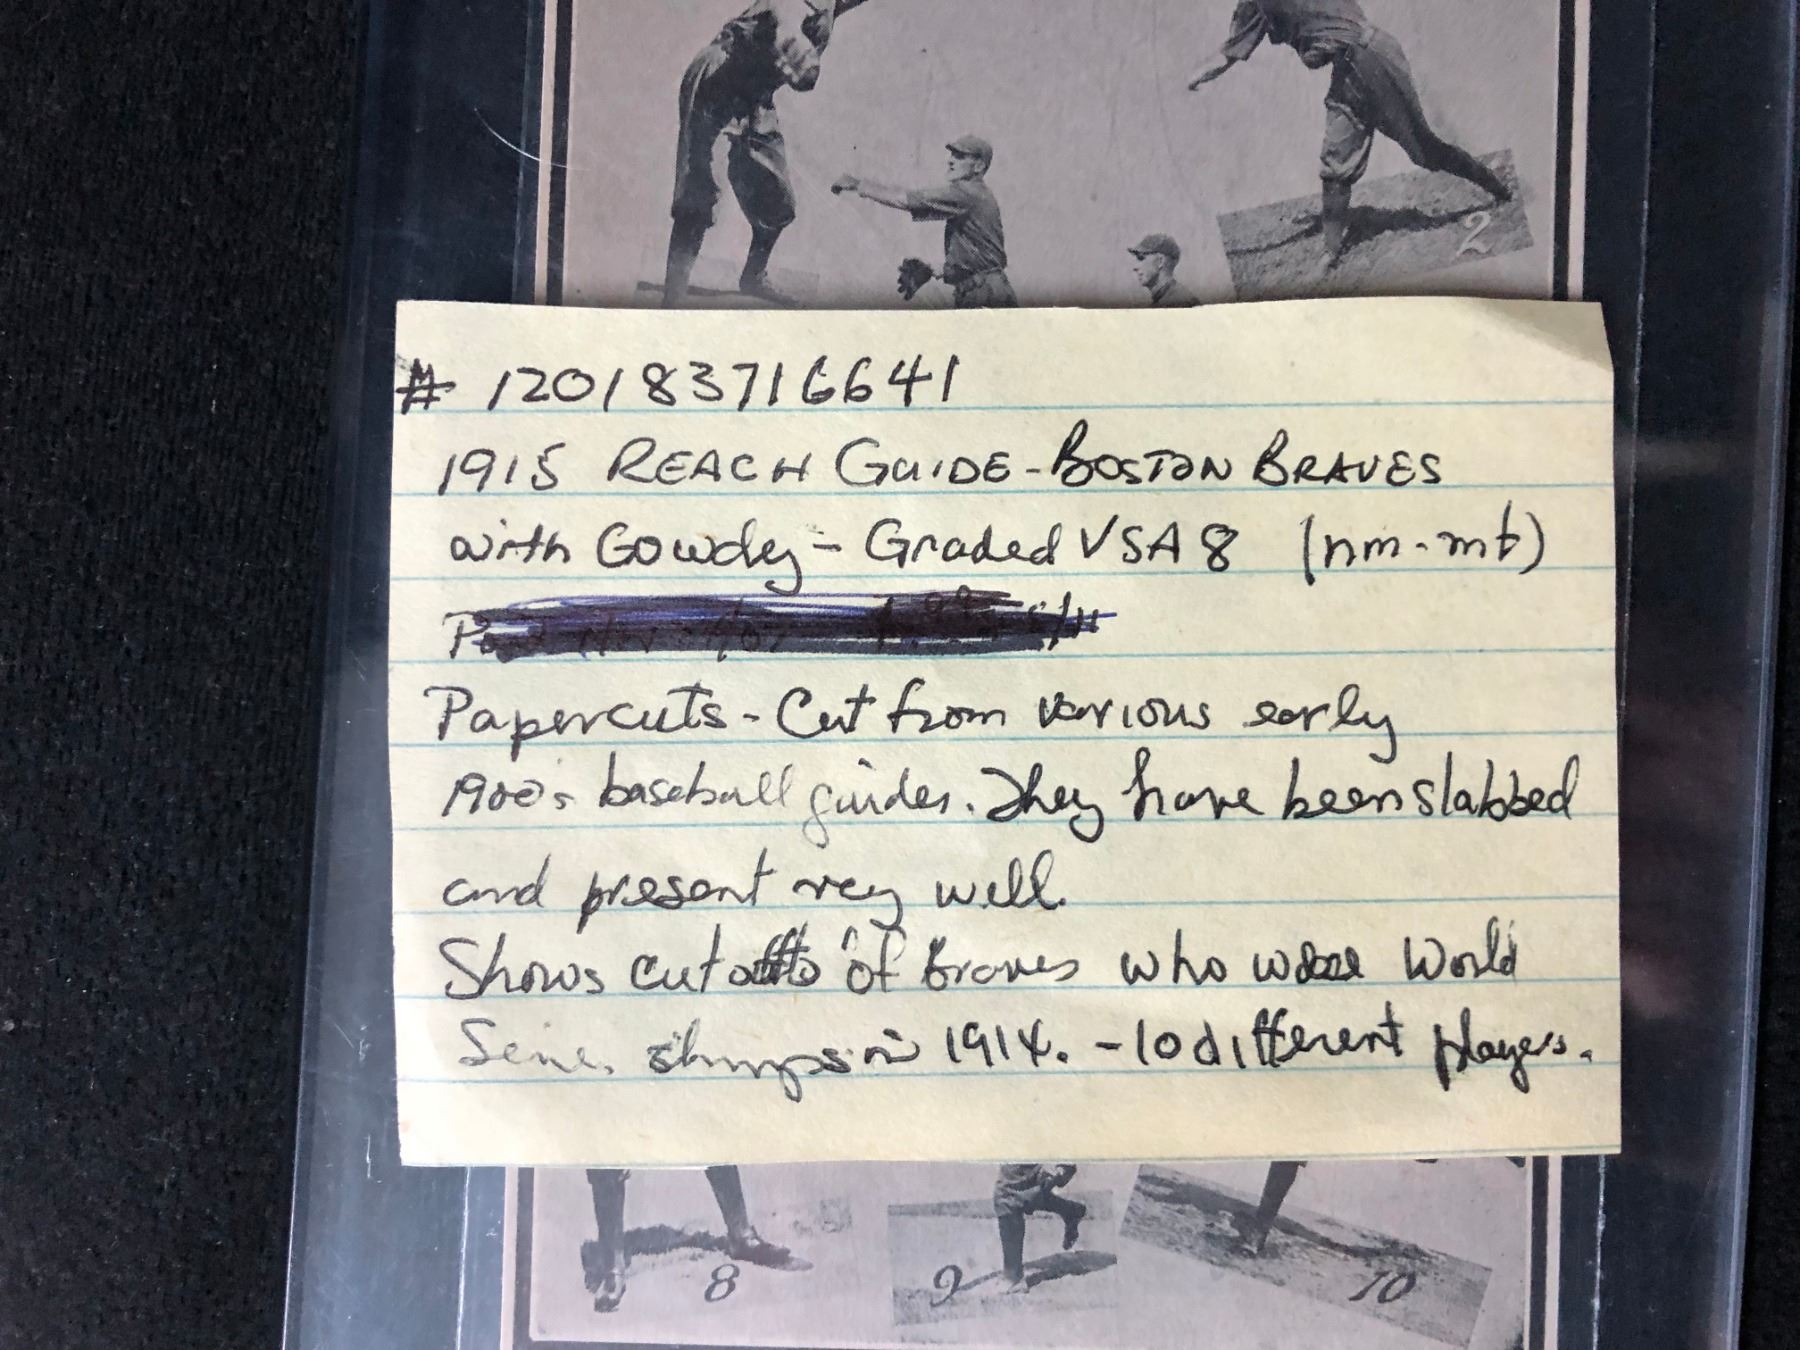 2
# 120183716641
1915 REACH GUIDE - BOSTON BRAVES
with Gowdy - Graded VSA 8 (nm-mt)
Papercuts - Cut from various early
1900s baseball guides. They have been slabbed
and present very well.
Shows cutoffs of Braves who were World
Serie. champs in 1914. - 10 different players.
8 9 10